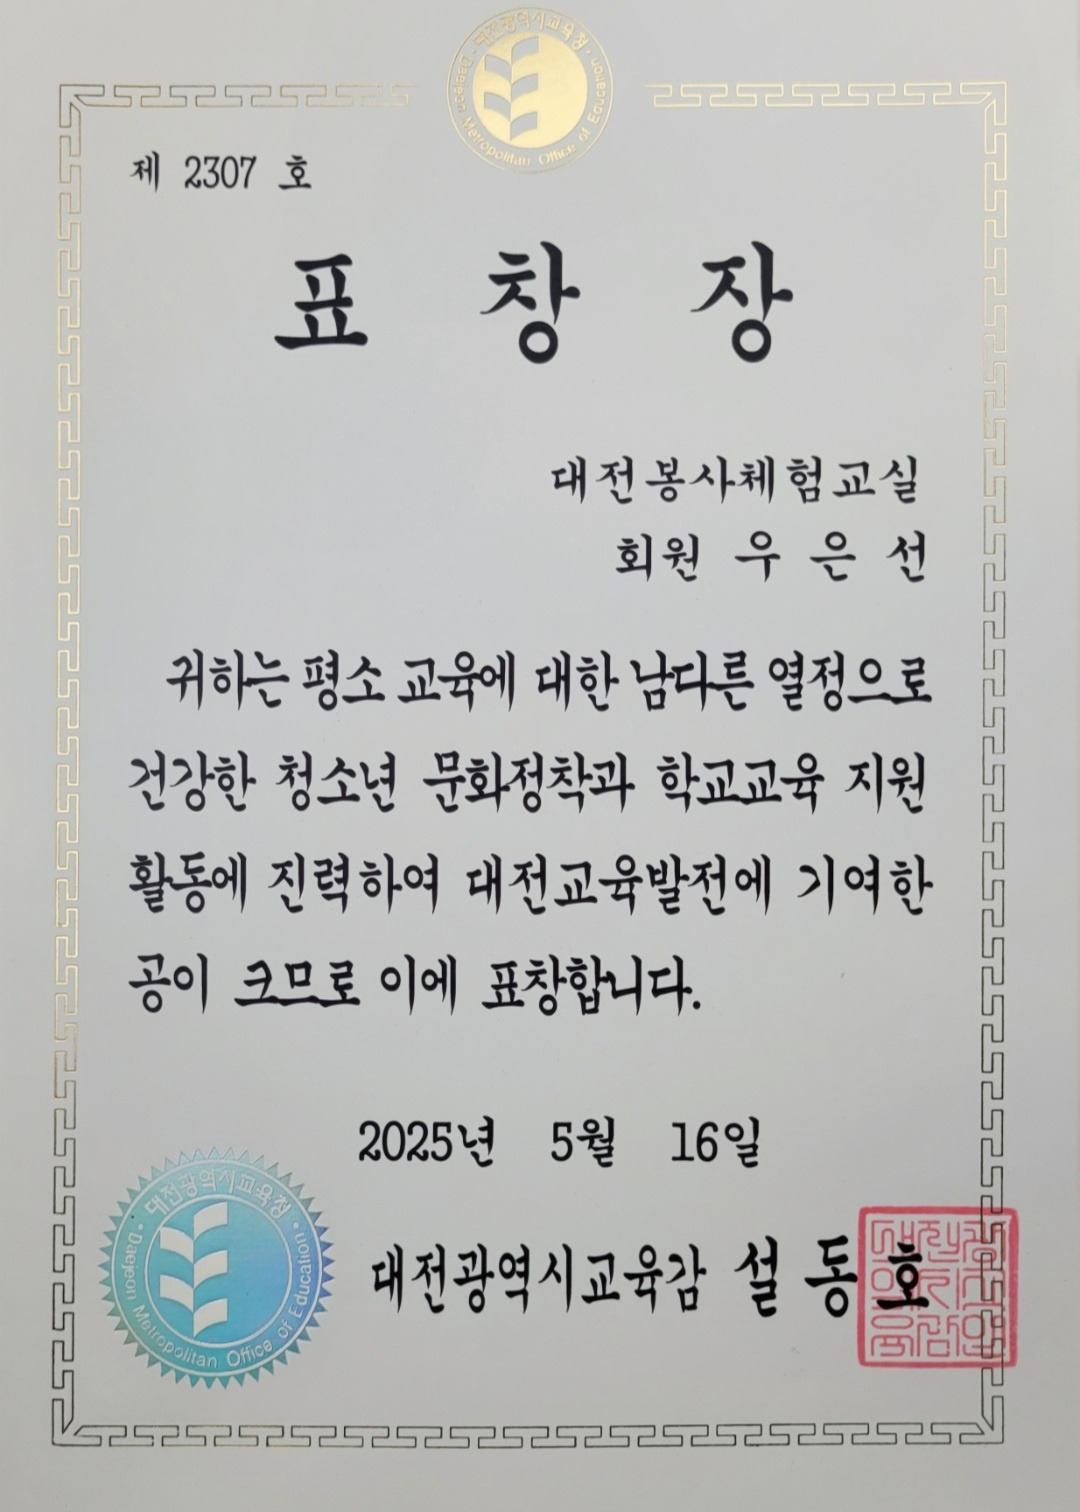 대전광역시교육청
Daejeon Metropolitan Office of Education
제 2307 호
표 창 장
대전봉사체험교실
회원 우 은 선
귀하는 평소 교육에 대한 남다른 열정으로
건강한 청소년 문화정착과 학교교육 지원
활동에 진력하여 대전교육발전에 기여한
공이 크므로 이에 표창합니다.
2025년 5월 16일
대전광역시교육청
Daejeon Metropolitan Office of Education
대전광역시교육감 설 동 호